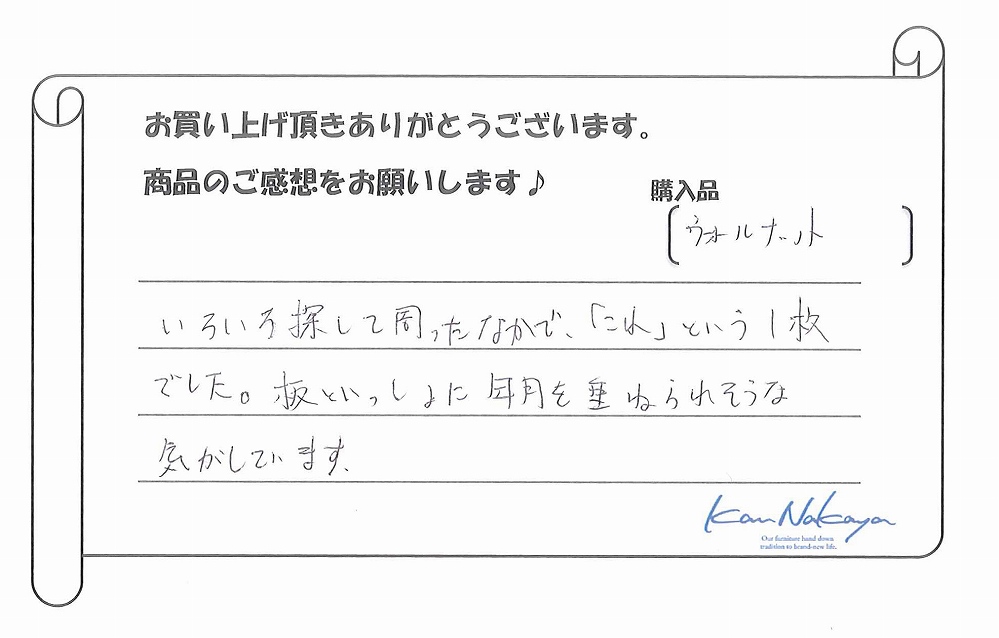 お買い上げ頂きありがとうございます。
商品のご感想をお願いします♪
購入品
ウォルナット
いろいろ探して周ったなかで、「これ」という1枚
でした。板といっしょに年月を重ねられそうな
気がしています。
KanNakaya
Our furniture hand down
tradition to brand-new life.